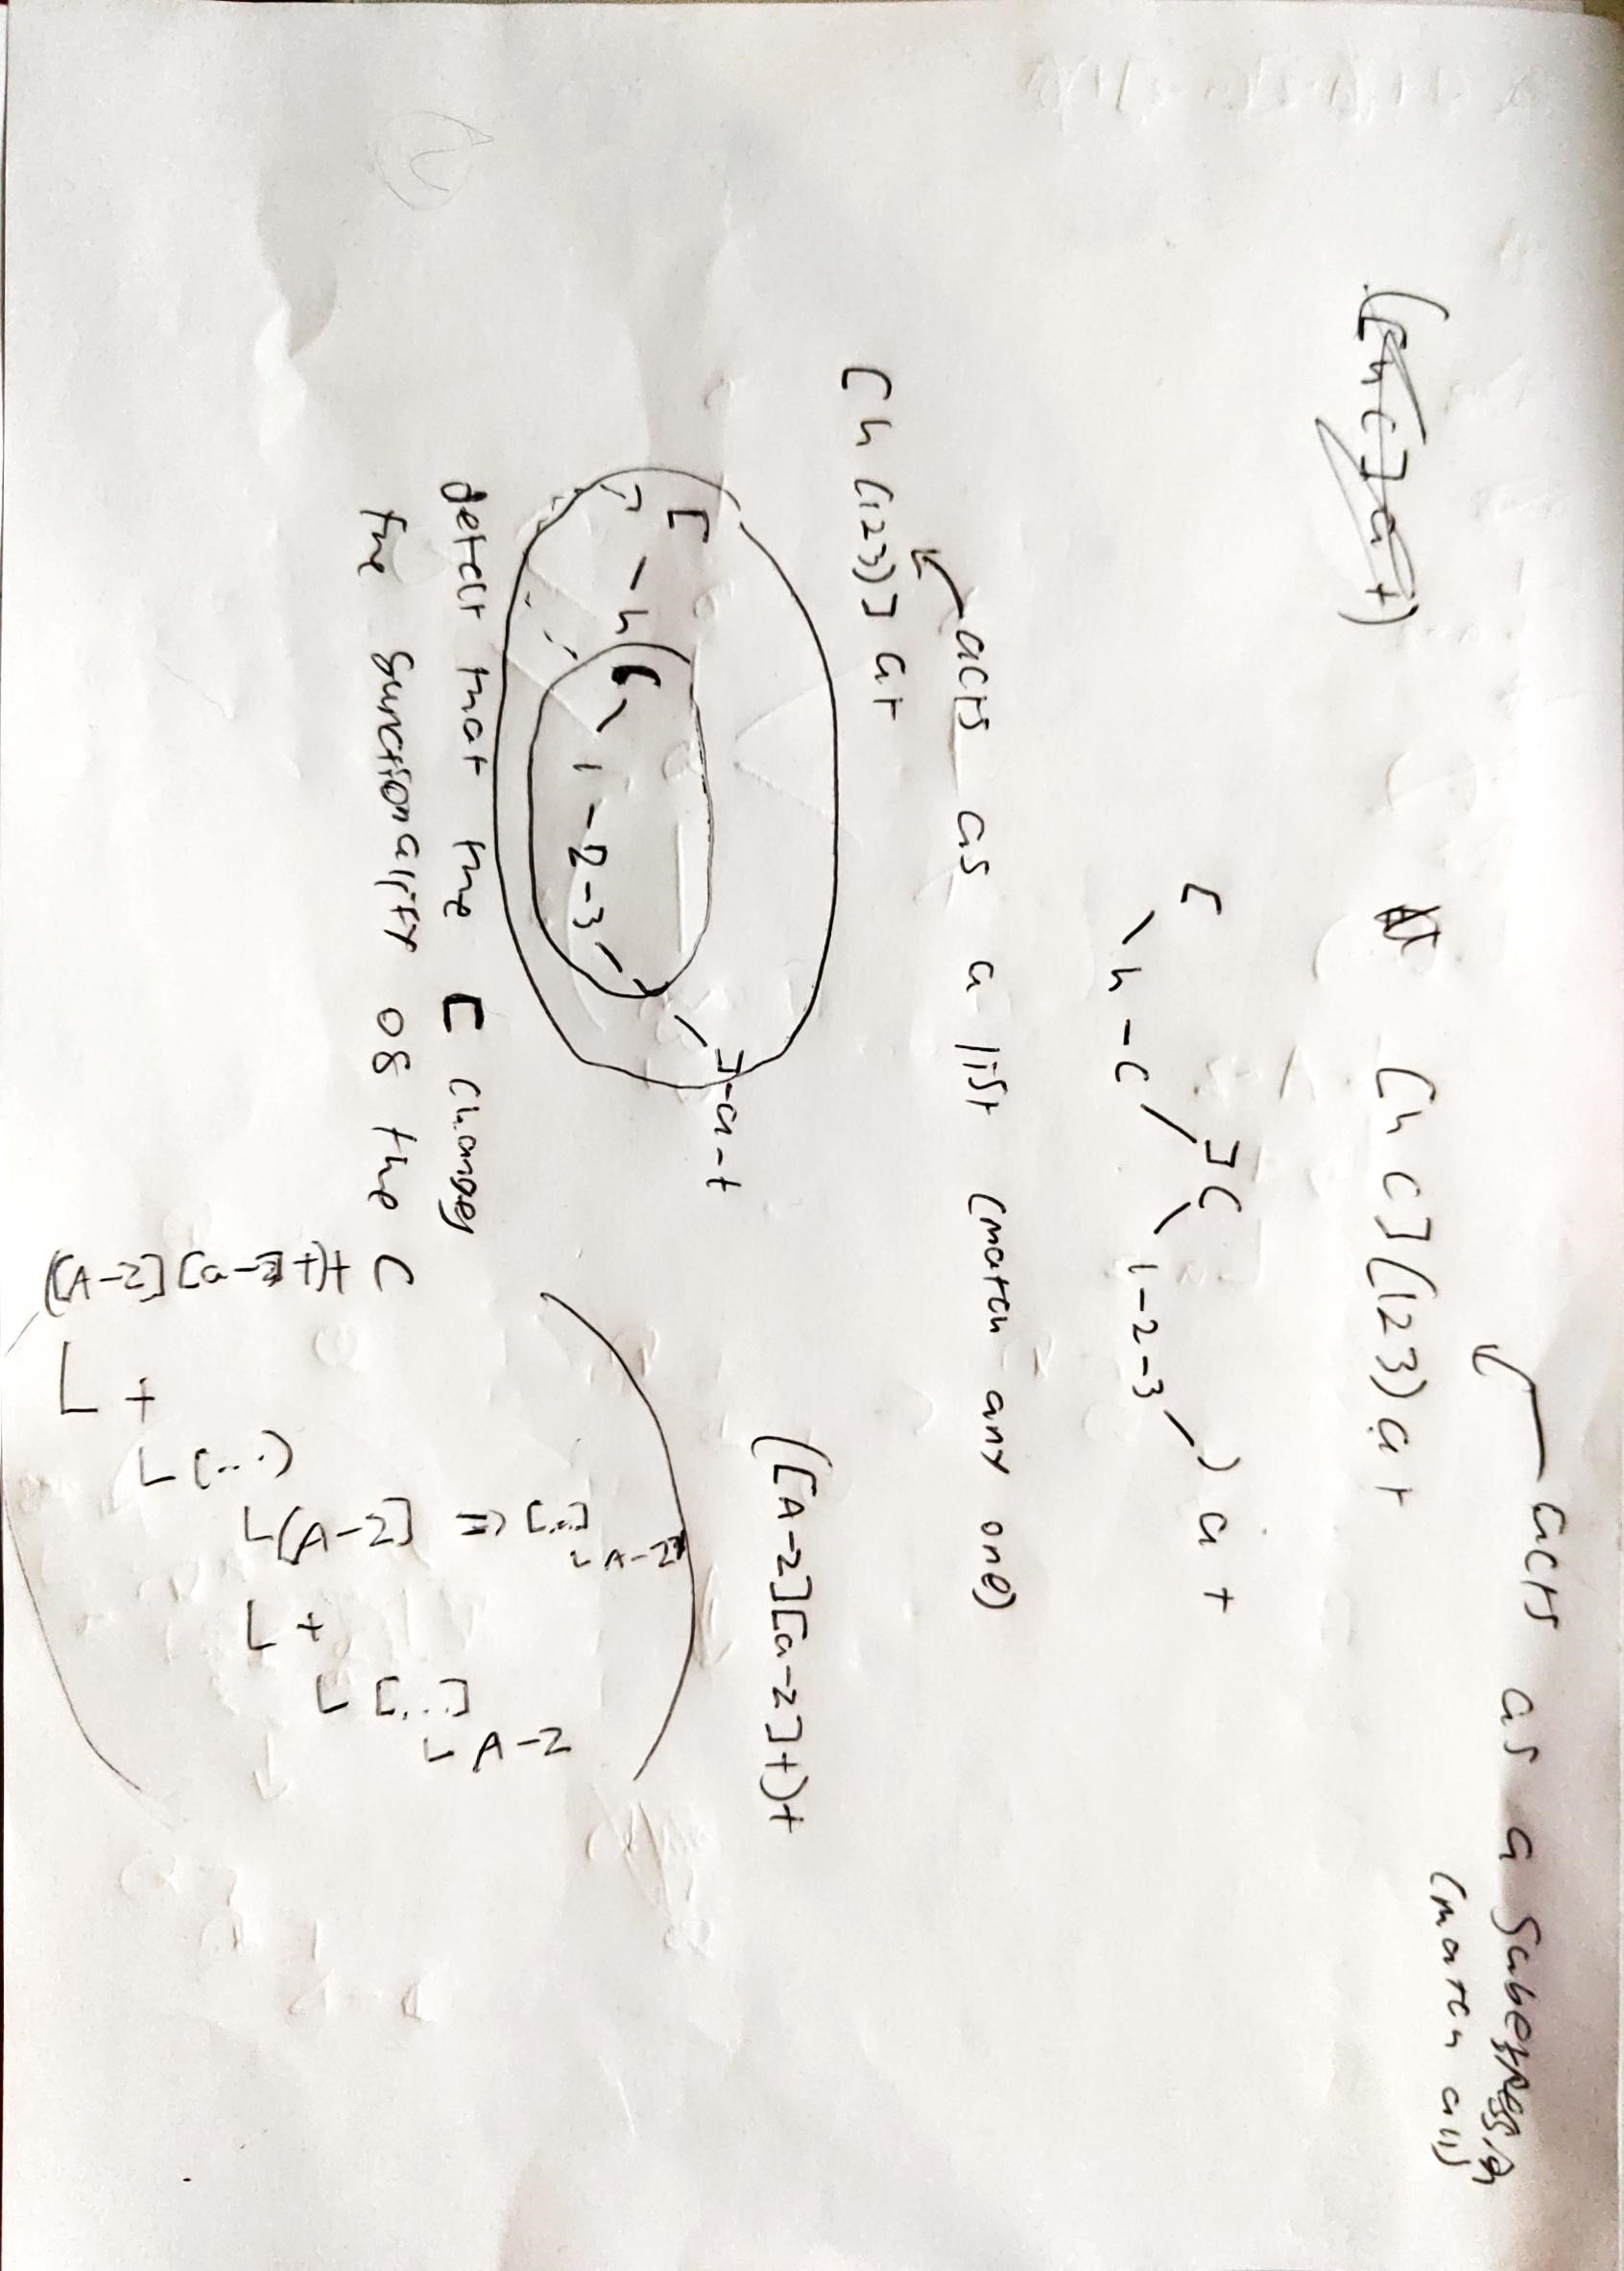 acts as a subexpression
(match all)
([hc]at)
[hc](123)at
[ ]( ) a t
h-c 1-2-3
acts as a list (match any one)
[h(123)]at
([A-Z][a-z]+)+
[ ]-a-t
h ( 1-2-3
detect that the [ changes
the functionality of the (
([A-Z][a-z]+)+
+
(...)
[A-Z] => [...]
A-Z
+
[...]
A-Z